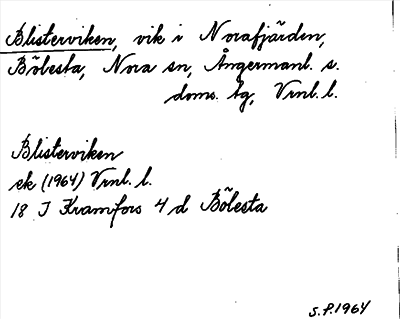 Blisterviken, vik i Norafjärden,
Bölesta, Nora sn, Ångermanl. s.
doms. tg, Vrnl. l.
Blisterviken
ek (1964) Vrnl. l.
18 I Kramfors 4 d Bölesta
S.P. 1964